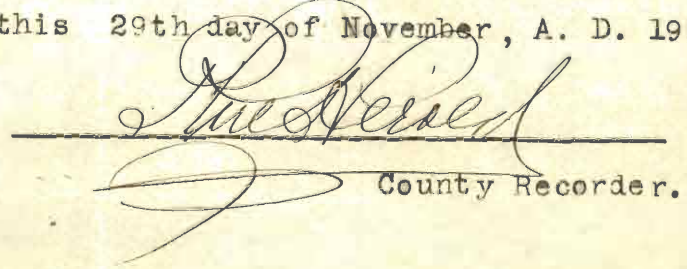 this 29th day of November, A. D. 19
County Recorder.